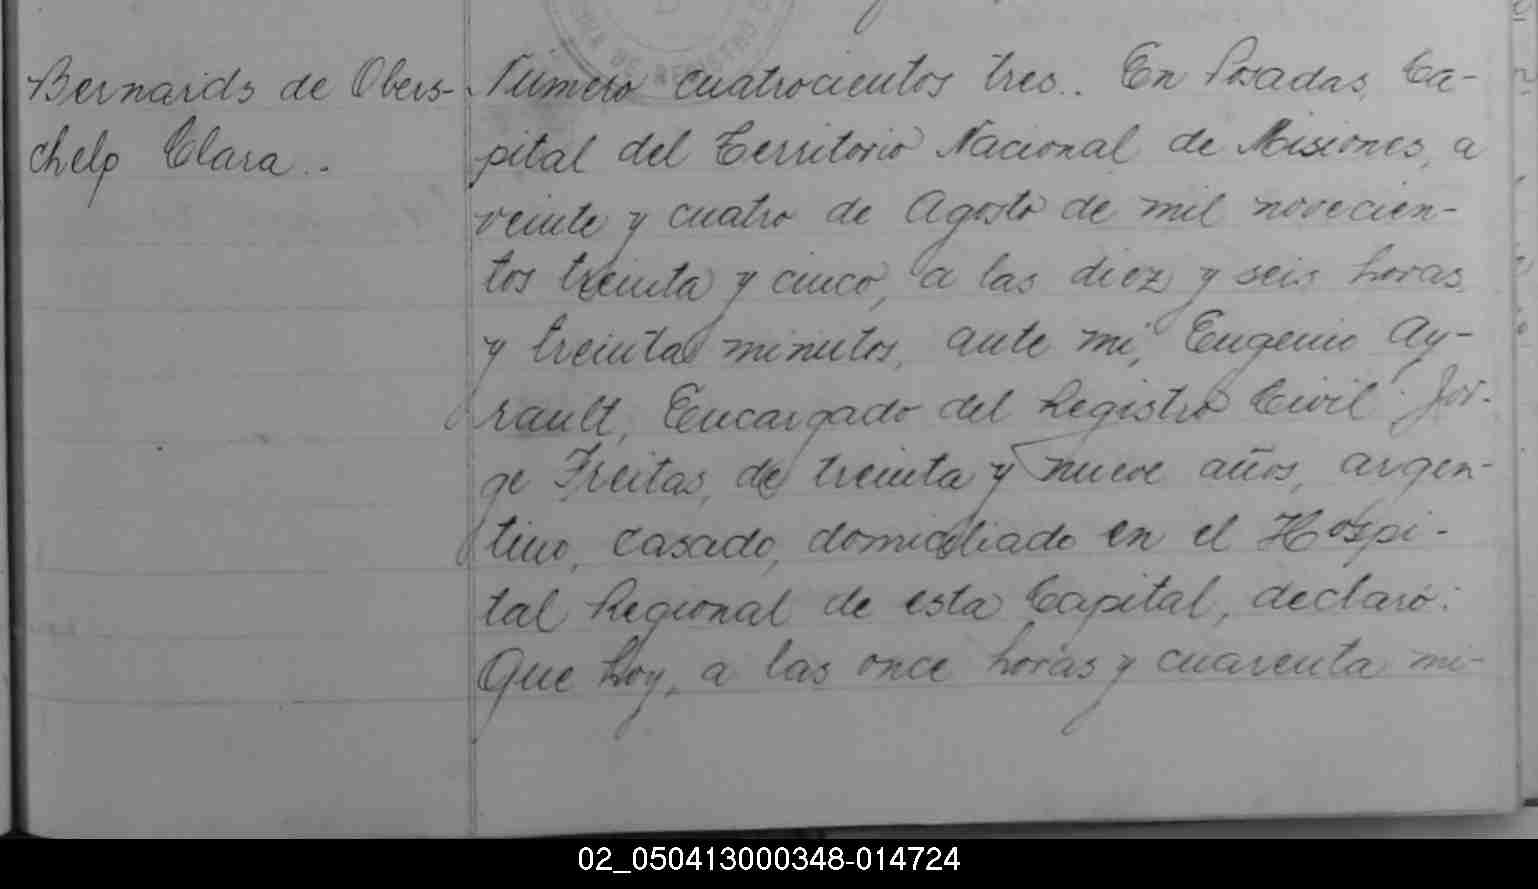 Bernards de Obers-
chelp Clara..
Número cuatrocientos tres.. En Posadas, Ca-
pital del Territorio Nacional de Misiones, a
veinte y cuatro de Agosto de mil novecien-
tos treinta y cinco, a las diez y seis horas
y treinta minutos, ante mi, Eugenio Ay-
rault, Encargado del Registro Civil. Jor-
ge Freitas, de treinta y nueve años, argen-
tino, casado, domiciliado en el Hospi-
tal Regional de esta Capital, declaró:
Que hoy, a las once horas y cuarenta mi-
02_050413000348-014724